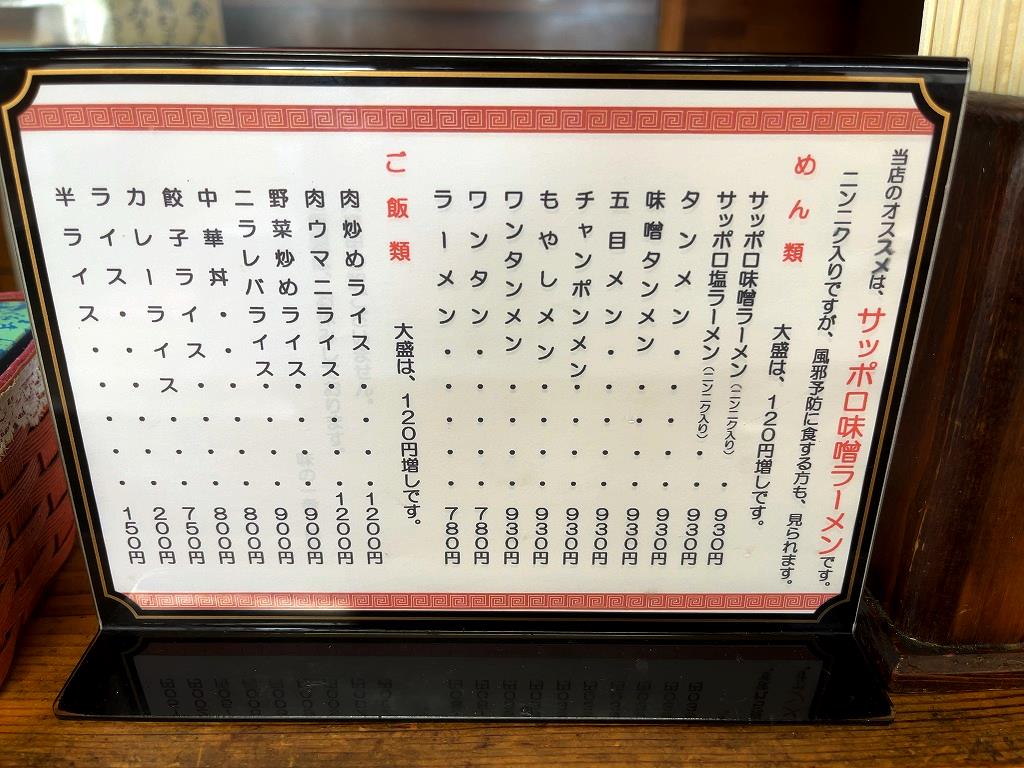 当店のオススメは、サッポロ味噌ラーメンです。
ニンニク入りですが、風邪予防に食する方も、見られます。
めん類 大盛は、120円増しです。
サッポロ味噌ラーメン(ニンニク入り)・930円
サッポロ塩ラーメン(ニンニク入り)・・930円
タンメン・・・・・930円
味噌タンメン・・・・930円
五目メン・・・・・930円
チャンポンメン・・・930円
もやしメン・・・・930円
ワンタンメン・・・・930円
ワンタン・・・・・780円
ラーメン・・・・・780円
ご飯類 大盛は、120円増しです。
肉炒めライス・・・1200円
肉ウマニライス・・・1200円
野菜炒めライス・・・・900円
ニラレバライス・・・・900円
中華丼・・・・・・800円
餃子ライス・・・・800円
カレーライス・・・750円
ライス・・・・・・200円
半ライス・・・・・150円